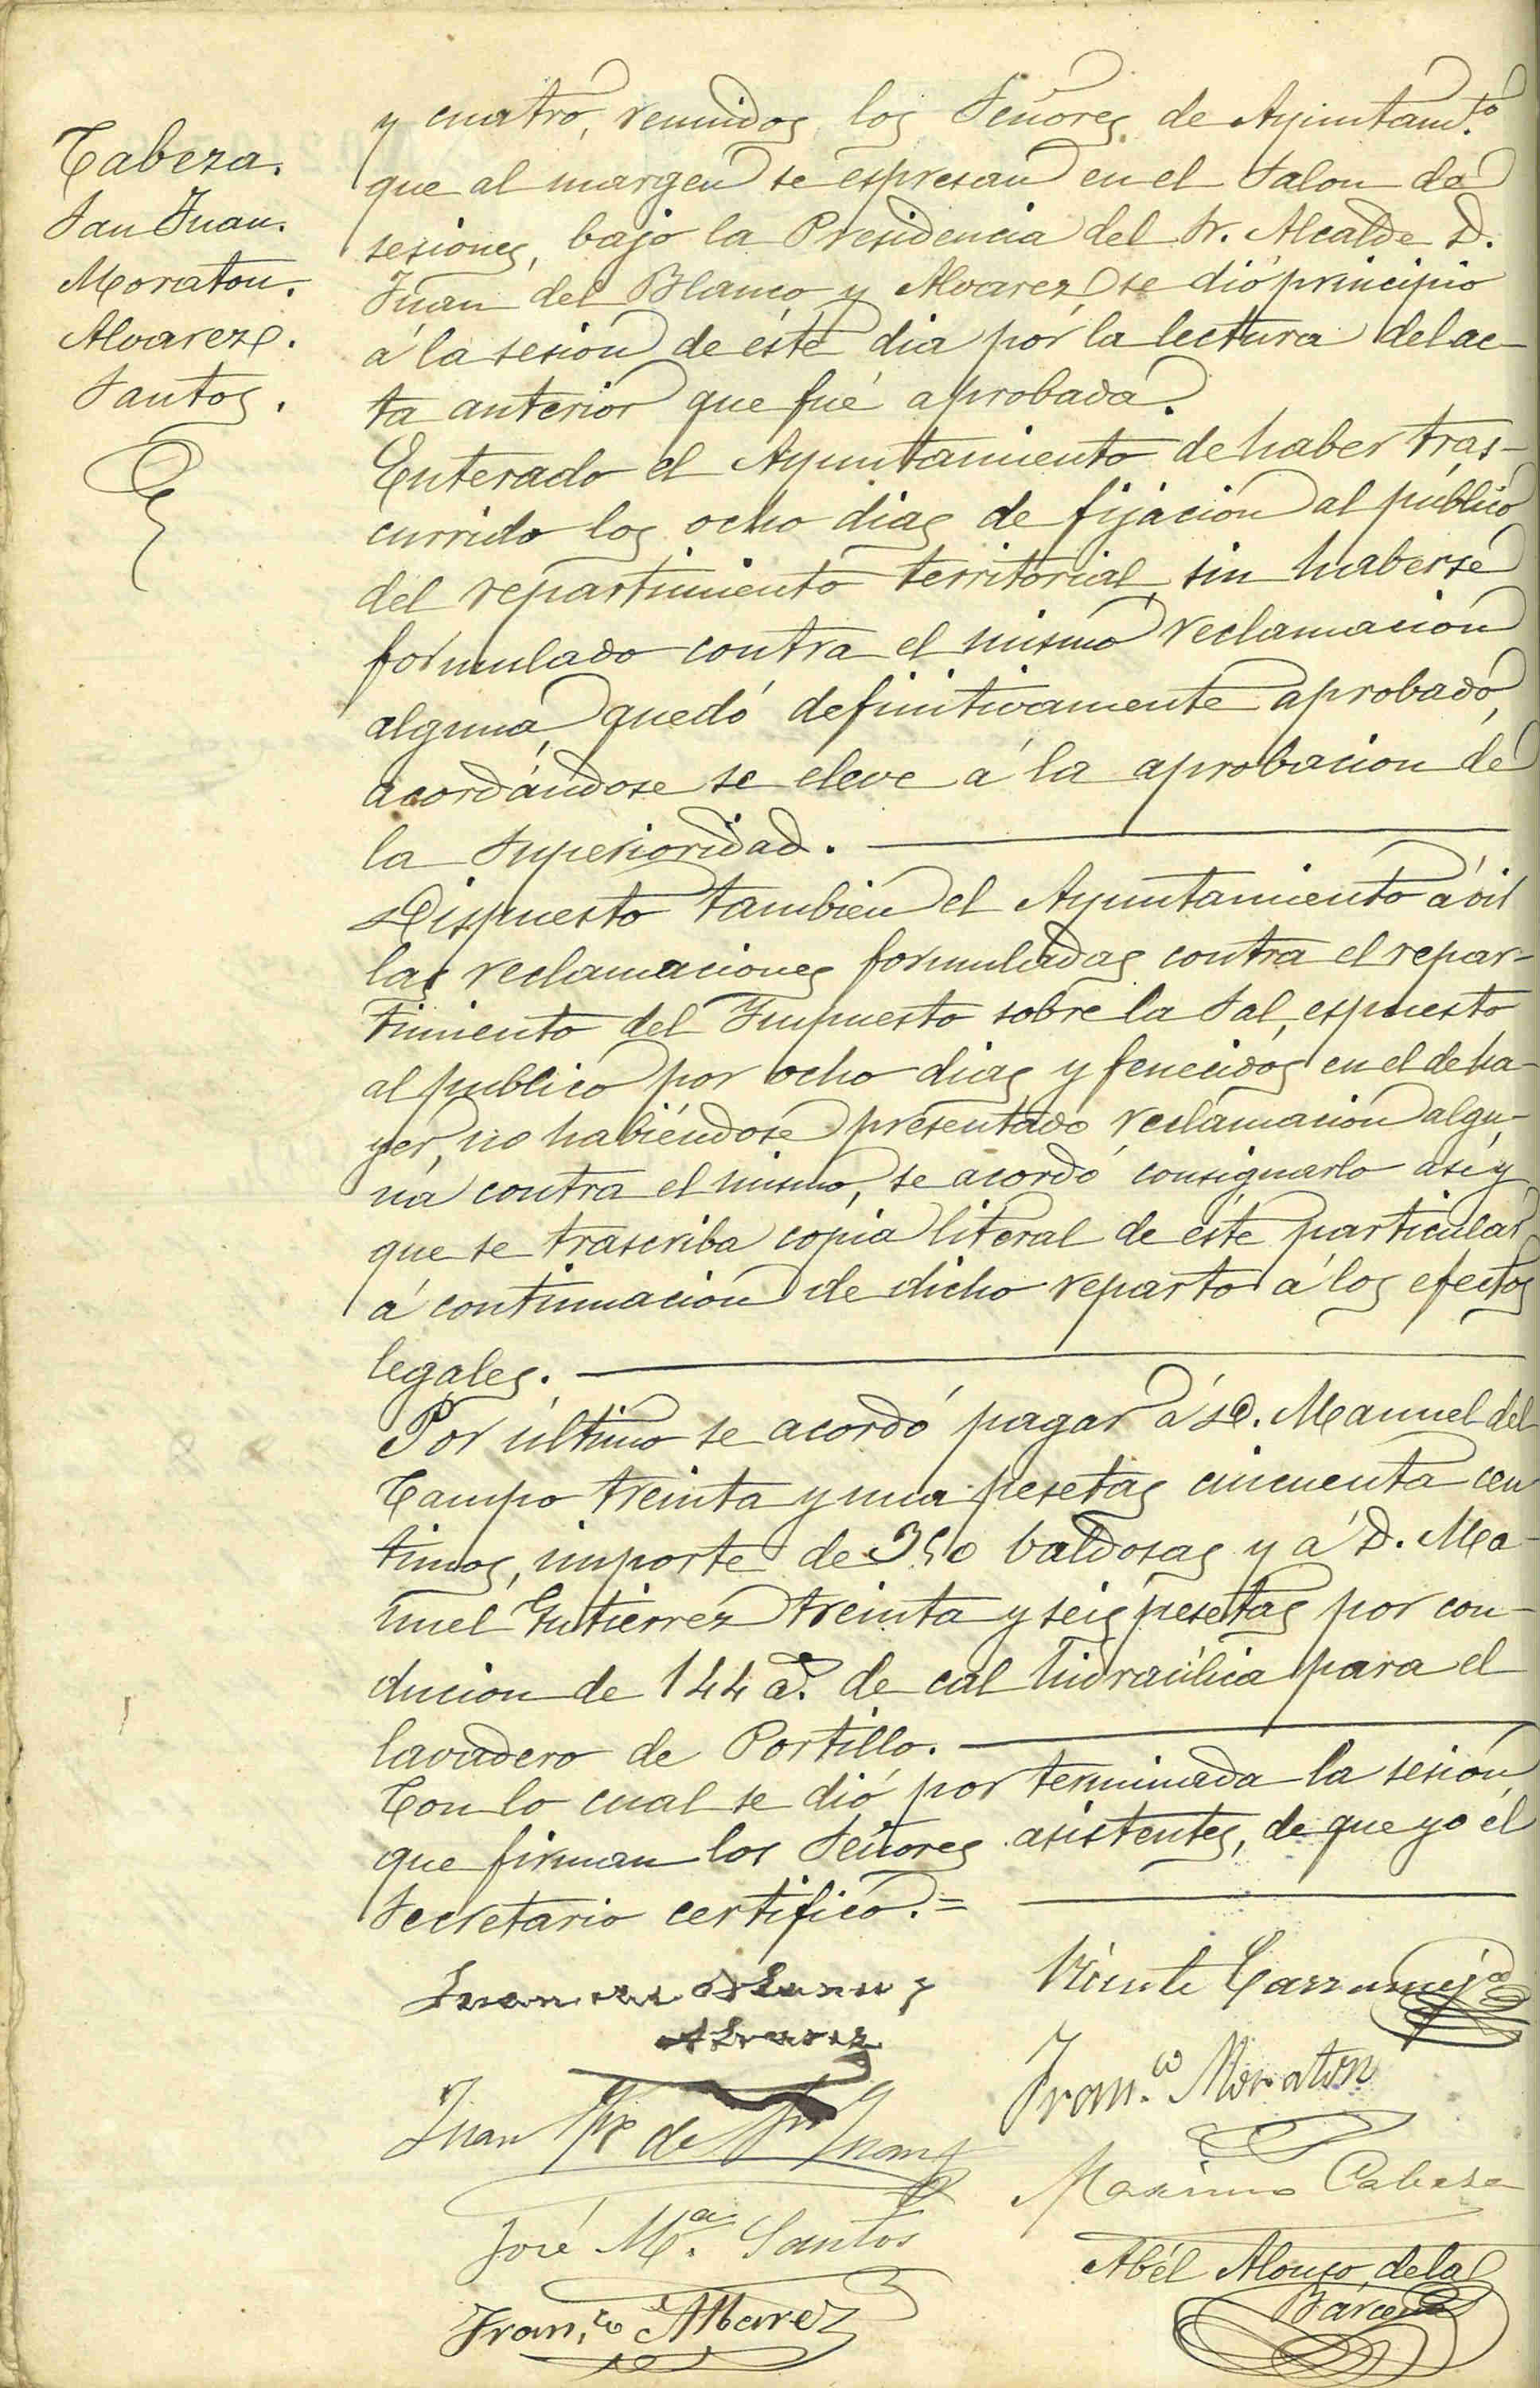 Cabeza.
San Juan.
Moraton.
Alvarez.
Santos.
y cuatro, reunidos los Señores de Ayuntamto
que al margen se espresan en el Salon de
sesiones, bajo la Presidencia del Sr. Alcalde D.
Juan del Blanco y Alvarez se dió principio
á la sesion de éste dia por la lectura del ac-
ta anterior que fué aprobada.
Enterado el Ayuntamiento de haber tras-
currido los ocho dias de fijacion al público
del repartimiento territorial, sin haberse
formulado contra el mismo reclamacion
alguna, quedó definitivamente aprobado,
acordándose se eleve á la aprobacion de
la Superioridad.
Dispuesto tambien el Ayuntamiento á oir
las reclamaciones formuladas contra el repar-
timiento del Impuesto sobre la Sal, espuesto
al publico por ocho dias y fenecidos en el de ha-
yer, no habiéndose presentado reclamacion algu-
na contra el mismo, se acordó consignarlo asi y
que se trascriba copia literal de éste particular
á continuacion de dicho reparto á los efectos
legales.
Por último se acordó pagar á D. Manuel del
Campo treinta y una pesetas cincuenta cen
timos, importe de 350 baldosas y á D. Ma-
nuel Gutierrez treinta y seis pesetas por con-
ducion de 144 a. de cal hidraúlica para el
lavadero de Portillo.
Con lo cual se dió por terminada la sesion,
que firman los Señores asistentes, de que yo él
Secretario certifico.=
Juan del Blanco y
Alvarez
Vicente
Juan de Sn Juan
Franco Moraton
Maximo Cabeza
José Ma. Santos
Abél Alonso de la
Barcena
Franco Alvarez